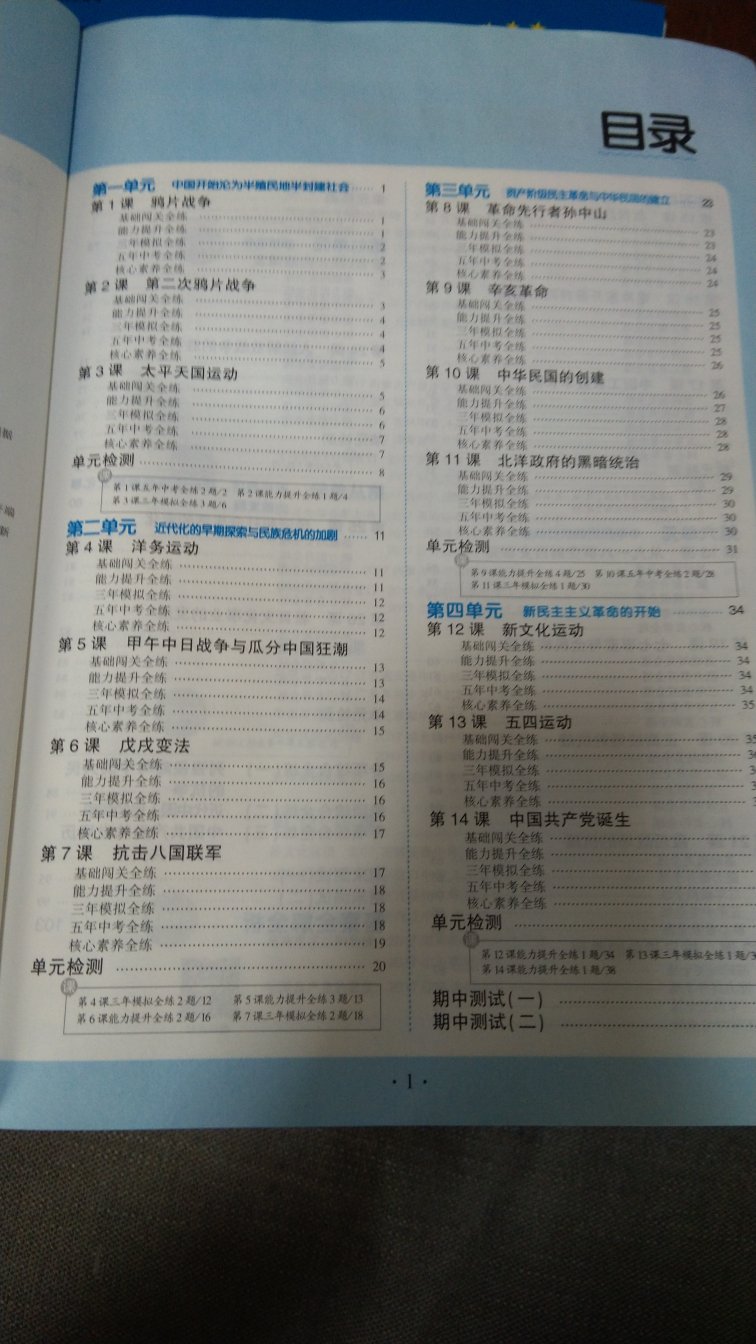 目录
第一单元 中国开始沦为半殖民地半封建社会 …… 1
第 1 课 鸦片战争
基础闯关全练 …… 1
能力提升全练 …… 1
三年模拟全练 …… 2
五年中考全练 …… 2
核心素养全练 …… 3
第 2 课 第二次鸦片战争
基础闯关全练 …… 3
能力提升全练 …… 4
三年模拟全练 …… 4
五年中考全练 …… 4
核心素养全练 …… 5
第 3 课 太平天国运动
基础闯关全练 …… 5
能力提升全练 …… 6
三年模拟全练 …… 6
五年中考全练 …… 7
核心素养全练 …… 7
单元检测 …… 8
课
第 1 课五年中考全练 2 题/2 第 2 课能力提升全练 1 题/4
第 3 课三年模拟全练 3 题/6
第二单元 近代化的早期探索与民族危机的加剧 …… 11
第 4 课 洋务运动
基础闯关全练 …… 11
能力提升全练 …… 11
三年模拟全练 …… 12
五年中考全练 …… 12
核心素养全练 …… 12
第 5 课 甲午中日战争与瓜分中国狂潮
基础闯关全练 …… 13
能力提升全练 …… 13
三年模拟全练 …… 14
五年中考全练 …… 14
核心素养全练 …… 15
第 6 课 戊戌变法
基础闯关全练 …… 15
能力提升全练 …… 16
三年模拟全练 …… 16
五年中考全练 …… 16
核心素养全练 …… 17
第 7 课 抗击八国联军
基础闯关全练 …… 17
能力提升全练 …… 18
三年模拟全练 …… 18
五年中考全练 …… 18
核心素养全练 …… 19
单元检测 …… 20
课
第 4 课三年模拟全练 2 题/12 第 5 课能力提升全练 3 题/13
第 6 课能力提升全练 2 题/16 第 7 课三年模拟全练 2 题/18
第三单元 资产阶级民主革命与中华民国的建立 23
第 8 课 革命先行者孙中山
基础闯关全练 …… 23
能力提升全练 …… 23
三年模拟全练 …… 24
五年中考全练 …… 24
核心素养全练 …… 24
第 9 课 辛亥革命
基础闯关全练 …… 25
能力提升全练 …… 25
三年模拟全练 …… 25
五年中考全练 …… 25
核心素养全练 …… 26
第 10 课 中华民国的创建
基础闯关全练 …… 26
能力提升全练 …… 27
三年模拟全练 …… 28
五年中考全练 …… 28
核心素养全练 …… 28
第 11 课 北洋政府的黑暗统治
基础闯关全练 …… 29
能力提升全练 …… 29
三年模拟全练 …… 30
五年中考全练 …… 30
核心素养全练 …… 30
单元检测 …… 31
第 9 课能力提升全练 4 题/25 第 10 课五年中考全练 2 题/28
第 11 课三年模拟全练 1 题/30
第四单元 新民主主义革命的开始 …… 34
第 12 课 新文化运动
基础闯关全练 …… 34
能力提升全练 …… 34
三年模拟全练 …… 34
五年中考全练 …… 34
核心素养全练 …… 35
第 13 课 五四运动
基础闯关全练 …… 35
能力提升全练 ……
三年模拟全练 ……
五年中考全练 ……
核心素养全练 ……
第 14 课 中国共产党诞生
基础闯关全练 ……
能力提升全练 ……
三年模拟全练 ……
五年中考全练 ……
核心素养全练 ……
单元检测 ……
第 12 课能力提升全练 1 题/34 第 13 课三年模拟全练 1 题/
第 14 课能力提升全练 1 题/38
期中测试(一) ……
期中测试(二) ……
· 1 ·